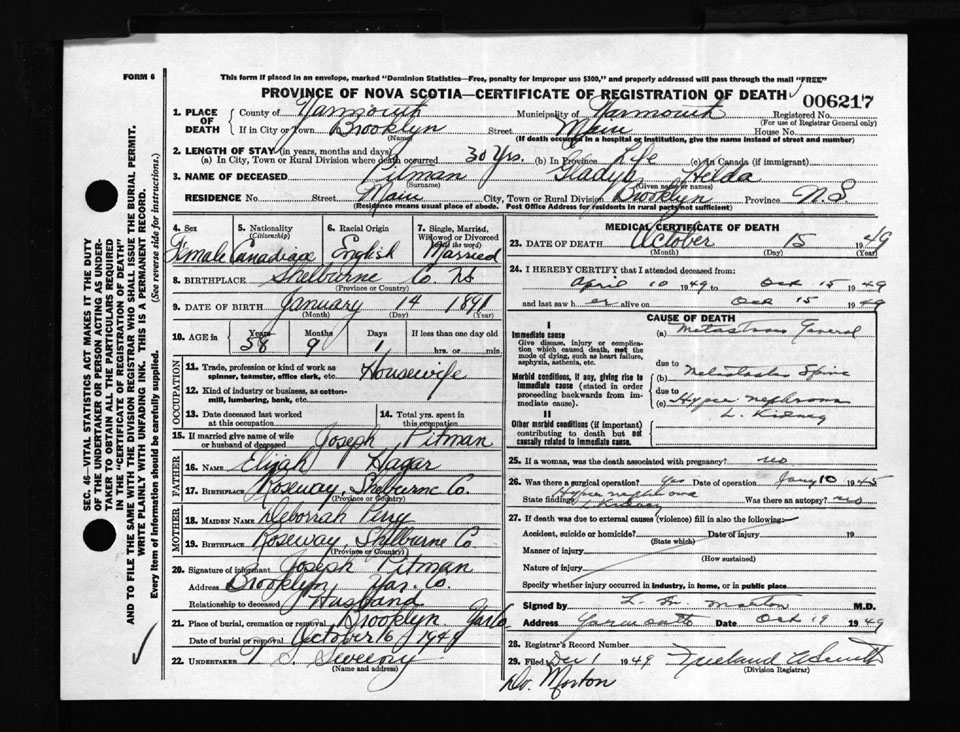 FORM 6
This form if placed in an envelope, marked "Dominion Statistics—Free, penalty for improper use $300," and properly addressed will pass through the mail "FREE"
PROVINCE OF NOVA SCOTIA—CERTIFICATE OF REGISTRATION OF DEATH
006217
1. PLACE OF DEATH { County of Yarmouth Municipality of Yarmouth Registered No.
(For use of Registrar General only)
If in City or Town Brooklyn Street Main House No.
(Name) (If death occurred in a hospital or institution, give the name instead of street and number)
2. LENGTH OF STAY (in years, months and days)
(a) In City, Town or Rural Division where death occurred 30 Yrs. (b) In Province Life (c) In Canada (if immigrant)
3. NAME OF DECEASED Pitman Gladys Helda
(Surname) (Given name or names)
RESIDENCE No. Street Main City, Town or Rural Division Brooklyn Province N.S
(Residence means usual place of abode. Post Office Address for residents in rural parts not sufficient)
4. Sex Female
5. Nationality (Citizenship) Canadian
6. Racial Origin English
7. Single, Married, Widowed or Divorced (Write the word) Married
8. BIRTHPLACE Shelburne Co. NS
(Province or Country)
9. DATE OF BIRTH January 14 1891
(Month) (Day) (Year)
10. AGE in { Years 58 Months 9 Days 1 If less than one day old
hrs. or min.
OCCUPATION
11. Trade, profession or kind of work as spinner, teamster, office clerk, etc. Housewife
12. Kind of industry or business, as cotton-mill, lumbering, bank, etc.
13. Date deceased last worked at this occupation
14. Total yrs. spent in this occupation
15. If married give name of wife or husband of deceased Joseph Pitman
FATHER
16. NAME Elijah Hagar
17. BIRTHPLACE Roseway Shelburne Co.
(Province or Country)
MOTHER
18. MAIDEN NAME Deborrah Perry
19. BIRTHPLACE Roseway Shelburne Co
(Province or Country)
20. Signature of informant Joseph Pitman
Address Brooklyn Yar. Co.
Relationship to deceased Husband
21. Place of burial, cremation or removal Brooklyn Yar Co
Date of burial or removal October 16 1949
22. UNDERTAKER V. S. Sweeny
(Name and address)
MEDICAL CERTIFICATE OF DEATH
23. DATE OF DEATH October 15 1949
(Month) (Day) (Year)
24. I HEREBY CERTIFY that I attended deceased from:
April 10 1949 to Oct 15 1949
and last saw h er alive on Oct 15 1949
CAUSE OF DEATH
I
Immediate cause
Give disease, injury or complication which caused death, not the mode of dying, such as heart failure, asphyxia, asthenia, etc.
(a) Metastases General
due to
Morbid conditions, if any, giving rise to immediate cause (stated in order proceeding backwards from immediate cause).
(b) Metastases Spine
due to
(c) Hyper nephroma
L. Kidney
II
Other morbid conditions (if important) contributing to death but not causally related to immediate cause.
25. If a woman, was the death associated with pregnancy? no
26. Was there a surgical operation? Yes Date of operation Jany 10 1945
State findings Hyper nephroma L Kidney Was there an autopsy? no
27. If death was due to external causes (violence) fill in also the following:
Accident, suicide or homicide? Date of injury 19
(State which)
Manner of injury
(How sustained)
Nature of injury
Specify whether injury occurred in industry, in home, or in public place
Signed by L. M. Morton M.D.
Address Yarmouth Date Oct 19 1949
28. Registrar's Record Number
29. Filed Dec 1 1949
(Division Registrar)
Dr. Morton
SEC. 46—VITAL STATISTICS ACT MAKES IT THE DUTY
OF THE UNDERTAKER OR PERSON ACTING AS UNDER-
TAKER TO OBTAIN ALL THE PARTICULARS REQUIRED
IN THE "CERTIFICATE OF REGISTRATION OF DEATH"
AND TO FILE THE SAME WITH THE DIVISION REGISTRAR WHO SHALL ISSUE THE BURIAL PERMIT.
WRITE PLAINLY WITH UNFADING INK. THIS IS A PERMANENT RECORD.
Every item of information should be carefully supplied. (See reverse side for instructions.)